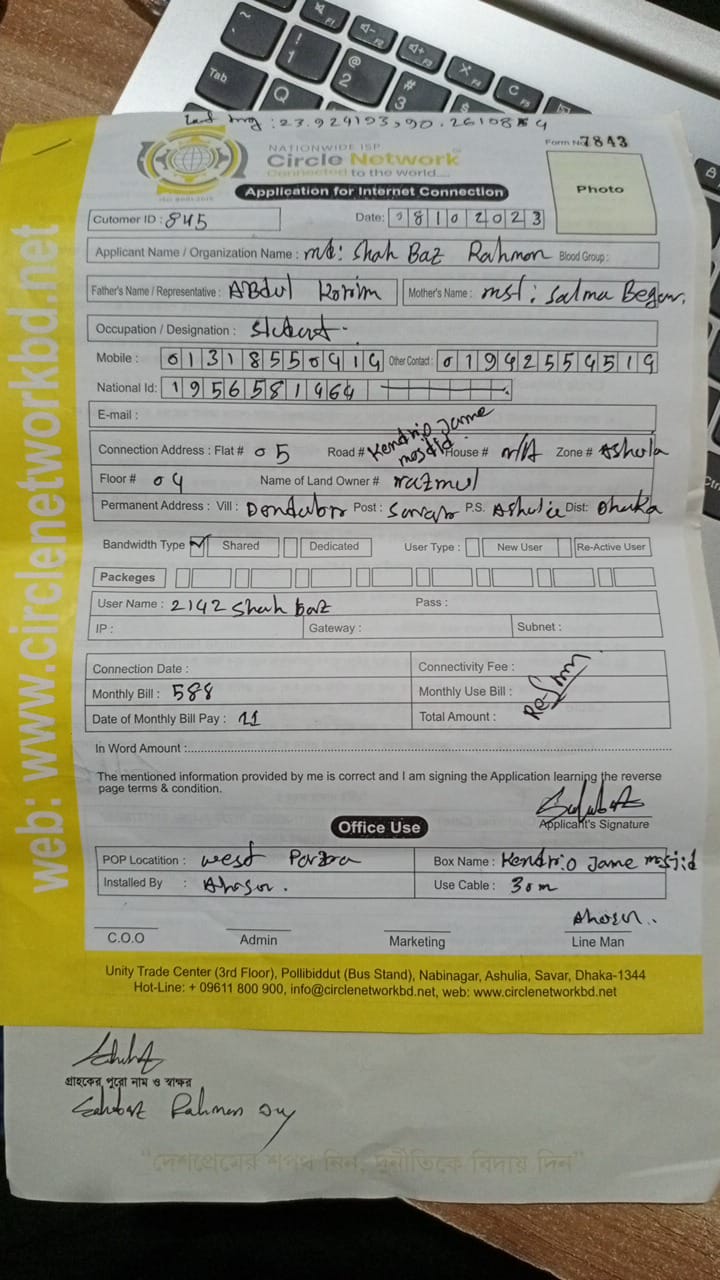 NATIONWIDE ISP
Form No 7843
Circle Network
Connected to the world....
ISO 9001:2015
Application for Internet Connection
Photo
Cutomer ID : 845 Date: 08102023
Applicant Name / Organization Name : md: Shah Baz Rahman Blood Group :
Father's Name / Representative : ABdul Korim Mother's Name : mst: Salma Begum.
Occupation / Designation :
Mobile : Other Contact :
National Id:
E-mail :
Connection Address : Flat # 05 Road # Kendrio Jame mosjid House # n/A Zone # Ashulia
Floor # 04 Name of Land Owner # nazmul
Permanent Address : Vill : Post : P.S. Ashulia Dist: Dhaka
Bandwidth Type Shared Dedicated User Type : New User Re-Active User
Packeges
User Name : 2142 Shah baz Pass :
IP : Gateway : Subnet :
Connection Date : Connectivity Fee :
Monthly Bill : 588 Monthly Use Bill :
Date of Monthly Bill Pay : 11 Total Amount :
In Word Amount :
The mentioned information provided by me is correct and I am signing the Application learning the reverse
page terms & condition.
Applicant's Signature
Office Use
POP Locatition : west Box Name : Kendrio Jame msjid
Installed By : Use Cable : 30m
C.O.O Admin Marketing Line Man
Unity Trade Center (3rd Floor), Pollibiddut (Bus Stand), Nabinagar, Ashulia, Savar, Dhaka-1344
Hot-Line: + 09611 800 900, info@circlenetworkbd.net, web: www.circlenetworkbd.net
web: www.circlenetworkbd.net
গ্রাহকের পুরো নাম ও স্বাক্ষর
Rahman
“দেশপ্রেমের শপথ নিন, দুর্নীতিকে বিদায় দিন”